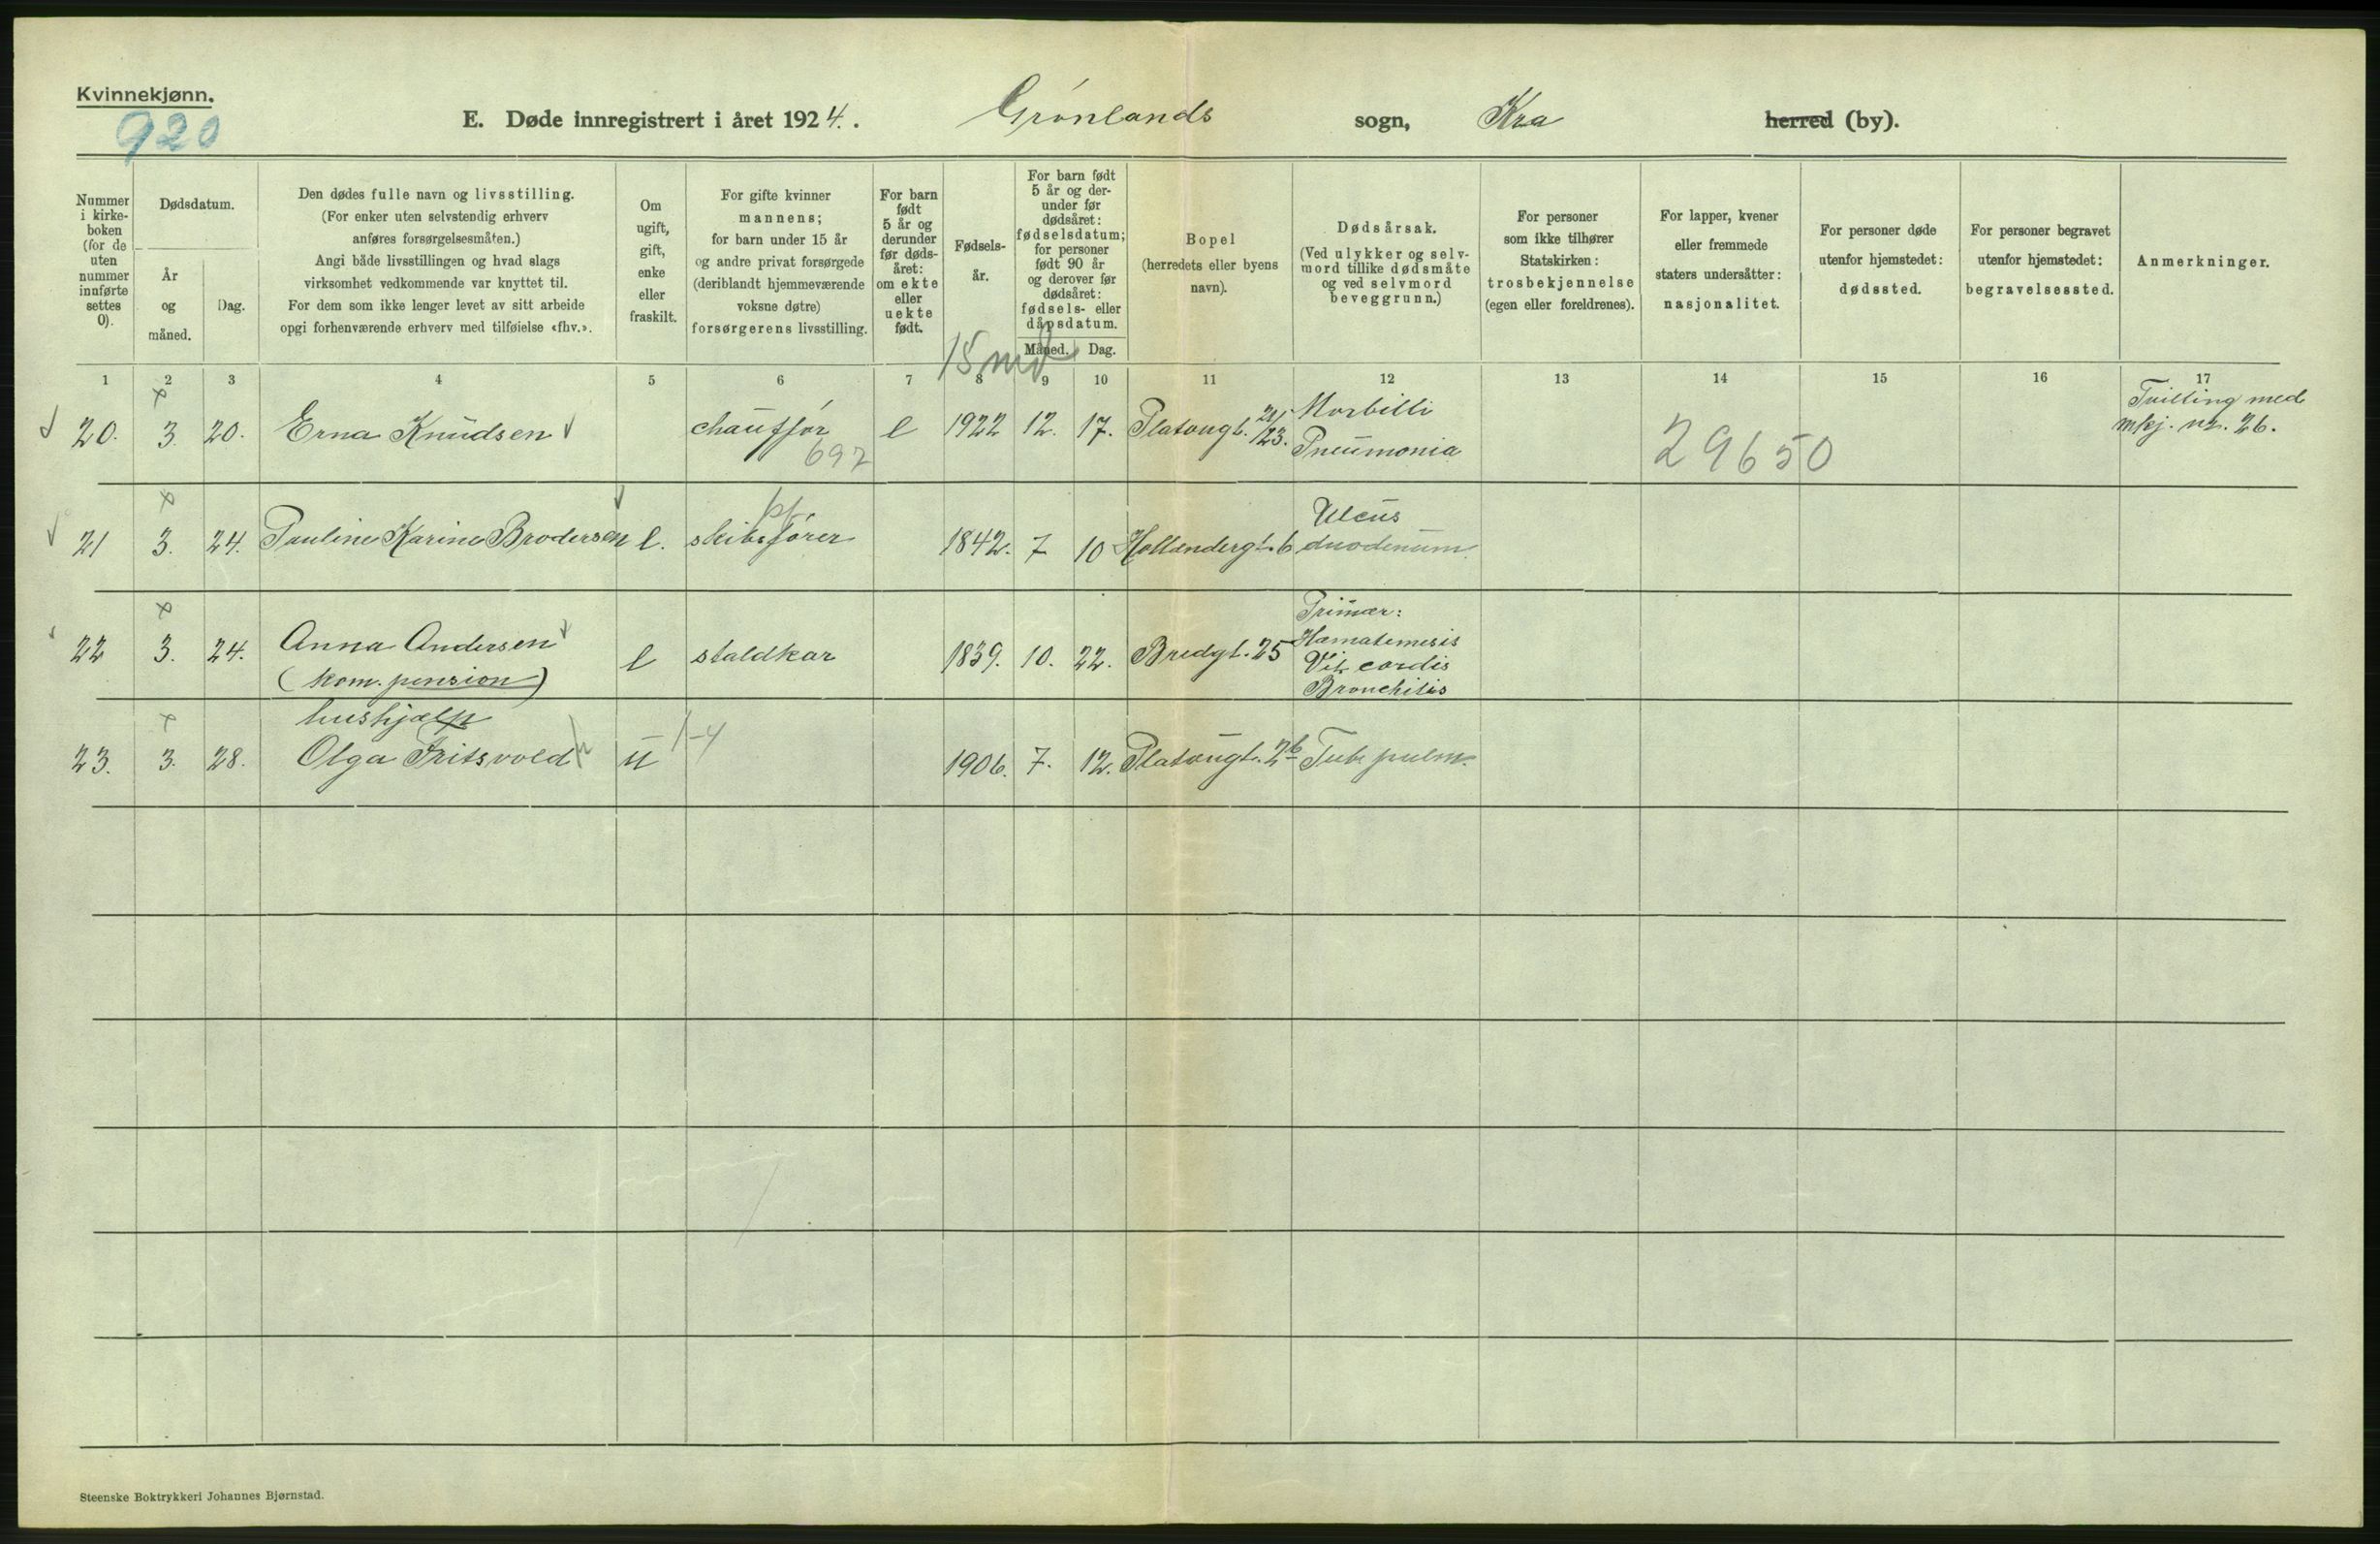 Kvinnekjønn.
920
E. Døde innregistrert i året 1924. . Grønlands sogn, Kra herred (by).
Nummer i kirke- boken (for de uten nummer innførte settes 0).
Dødsdatum.
År og måned.
Dag.
Den dødes fulle navn og livsstilling.
(For enker uten selvstendig erhverv
anføres forsørgelsesmåten.)
Angi både livsstillingen og hvad slags
virksomhet vedkommende var knyttet til.
For dem som ikke lenger levet av sitt arbeide
opgi forhenværende erhverv med tilføielse «fhv.».
Om ugift, gift, enke eller fraskilt.
For gifte kvinner
mannens;
for barn under 15 år
og andre privat forsørgede
(deriblandt hjemmeværende
voksne døtre)
forsørgerens livsstilling.
For barn født 5 år og derunder før døds- året: om ekte eller uekte født.
Fødsels- år.
For barn født 5 år og der- under før dødsåret: fødselsdatum; for personer født 90 år og derover før dødsåret: fødsels- eller dåpsdatum.
Måned. Dag.
Bopel
(herredets eller byens
navn).
Dødsårsak.
(Ved ulykker og selv-
mord tillike dødsmåte
og ved selvmord
beveggrunn.)
For personer
som ikke tilhører
Statskirken:
trosbekjennelse
(egen eller foreldrenes).
For lapper, kvener
eller fremmede
staters undersåtter:
nasjonalitet.
For personer døde
utenfor hjemstedet:
dødssted.
For personer begravet
utenfor hjemstedet:
begravelsessted.
Anmerkninger.
15 md
1 2 3 4 5 6 7 8 9 10 11 12 13 14 15 16 17
20. 3. 20. Erna Knudsen chauffør e 1922 12. 17. Platougt. 21/23. Morbilli
Pneumonia
Tvilling med
mkj. nr. 26.
697
29650
21 3. 24. Pauline Karine Brodersen e. skibsfører 1842. 7 10 Hollendergt. 6 Ulcus
duodenum.
22 3. 24. Anna Andersen
(kom. pension)
e staldkar 1839. 10. 22. Bredgt. 25 Primær:
Hæmatemesis
Vit. cordis
Bronchitis
hushjælp
23. 3. 28. Olga Fritsvold u 1-4 1906. 7. 12. Platougt. 26 Tub. pulm.
Steenske Boktrykkeri Johannes Bjørnstad.